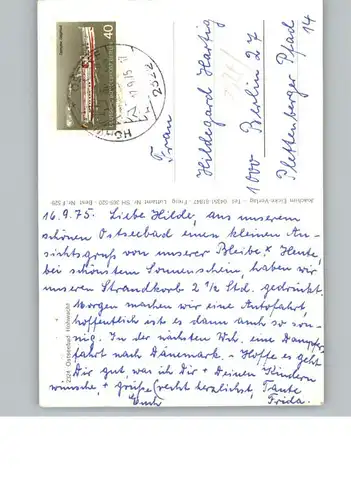 40
2322
Frau
Hildegard Hartig
1000 Berlin 27
Plettenberger Pfad
14
Joachim Eicke-Verlag - Tel. 04351 81847 - Freig. Luftamt Nr. SH 265-520 - Best. Nr. F 529
2324 Ostseebad Hohwacht
16.9.75. Liebe Hilde, aus unserem
schönen Ostseebad einen kleinen An-
sichtsgruß von unserer Bleibe. x Heute,
bei schönstem Sonnenschein, haben wir
unseren Strandkorb 2 1/2 Std. gedrückt.
Morgen machen wir eine Autofahrt,
hoffentlich ist es dann auch so son-
nig. In der nächsten Wch. eine Dampfer-
fahrt nach Dänemark. - Hoffe es geht
Dir gut, was ich Dir + Deinen Kindern
wünsche, + grüße recht herzlichst, Tante
Euch Frida.